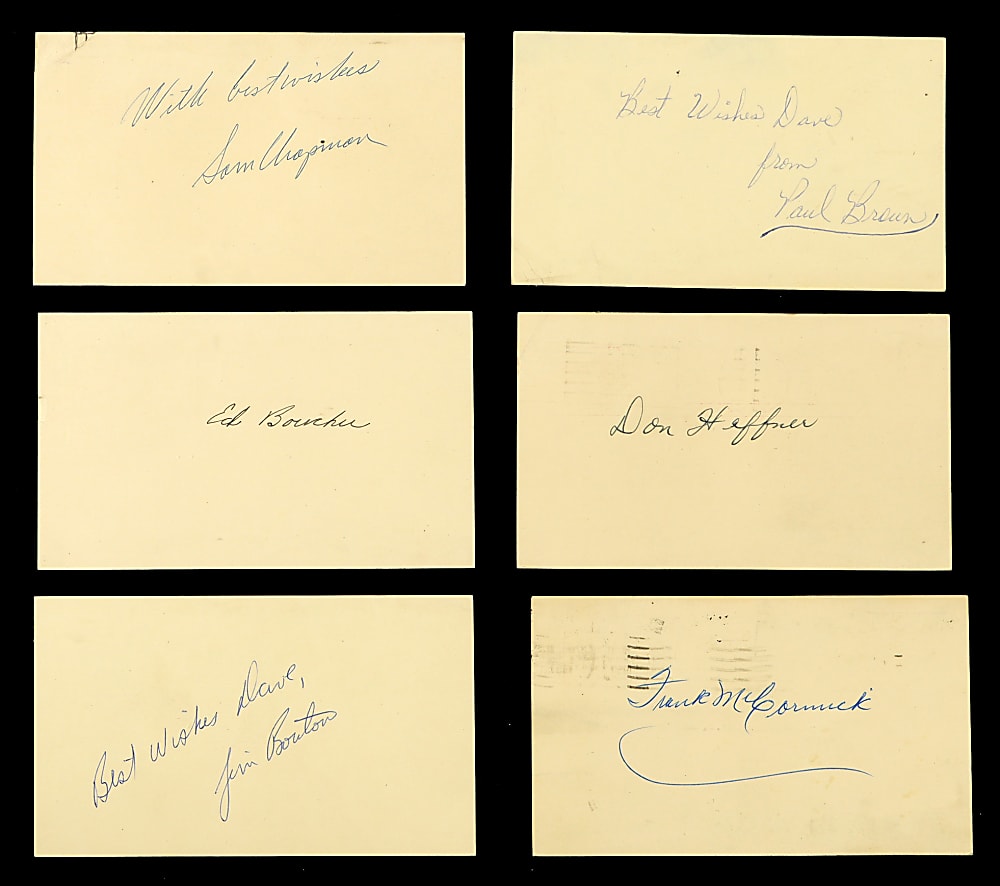 With best wishes
Sam Chapman
Best Wishes Dave
from
Paul Brown
Ed Boucher
Don Heffner
Best Wishes Dave,
Jim Bouton
Frank McCormick